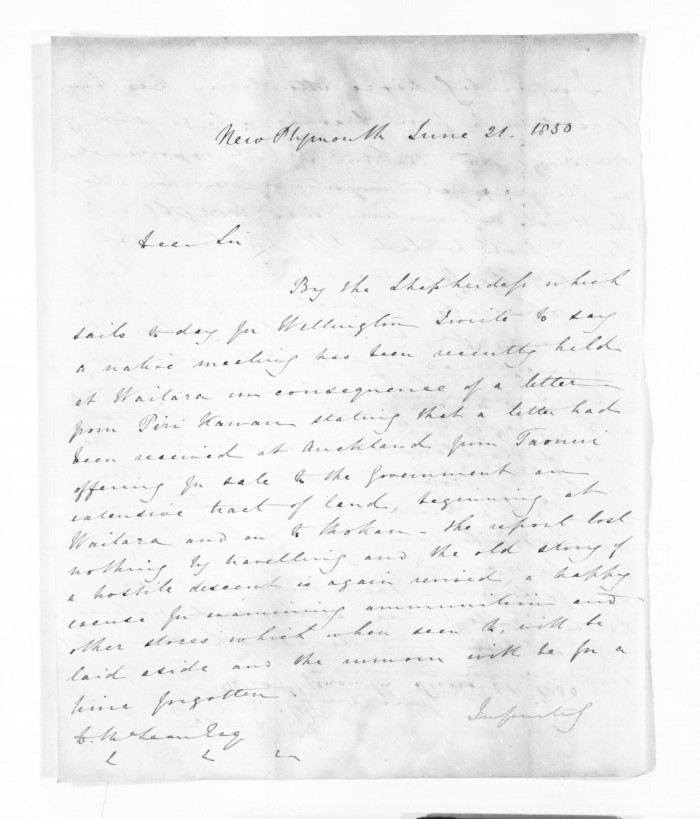 New Plymouth June 21. 1850
Dear Sir
By the Shepherdess which
sails to day for Wellington I write to say
a native meeting has been recently held
at Waitara in consequence of a letter
from Piri Kawau stating that a letter had
been received at Auckland from Taonui
offering for sale to the Government an
extensive tract of land, beginning at
Waitara and on to Mokau - the report lost
nothing by travelling and the old story of
a hostile descent is again revived, a happy
excuse for examining ammunition and
other stores which when seen to, will be
laid aside and the rumour will be for a
time forgotten.
D. McLean Esq